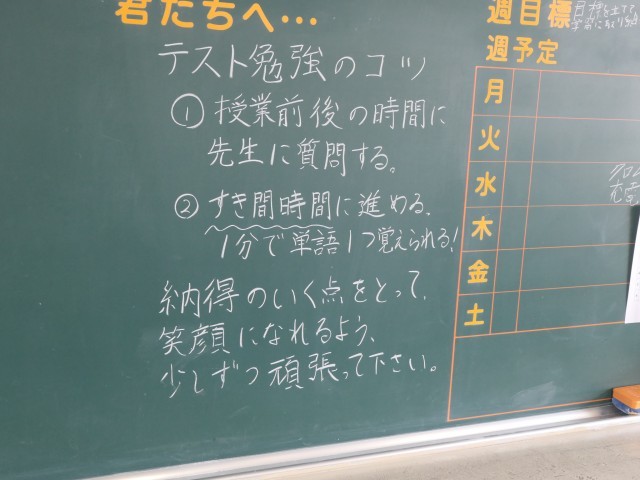 君たちへ…
テスト勉強のコツ
①授業前後の時間に
先生に質問する。
②すき間時間に進める、
1分で単語1つ覚えられる!
納得のいく点をとって、
笑顔になれるよう、
少しずつ頑張って下さい。
週目標
目標を立て
週予定
月
火
水
木
金
土
クロム